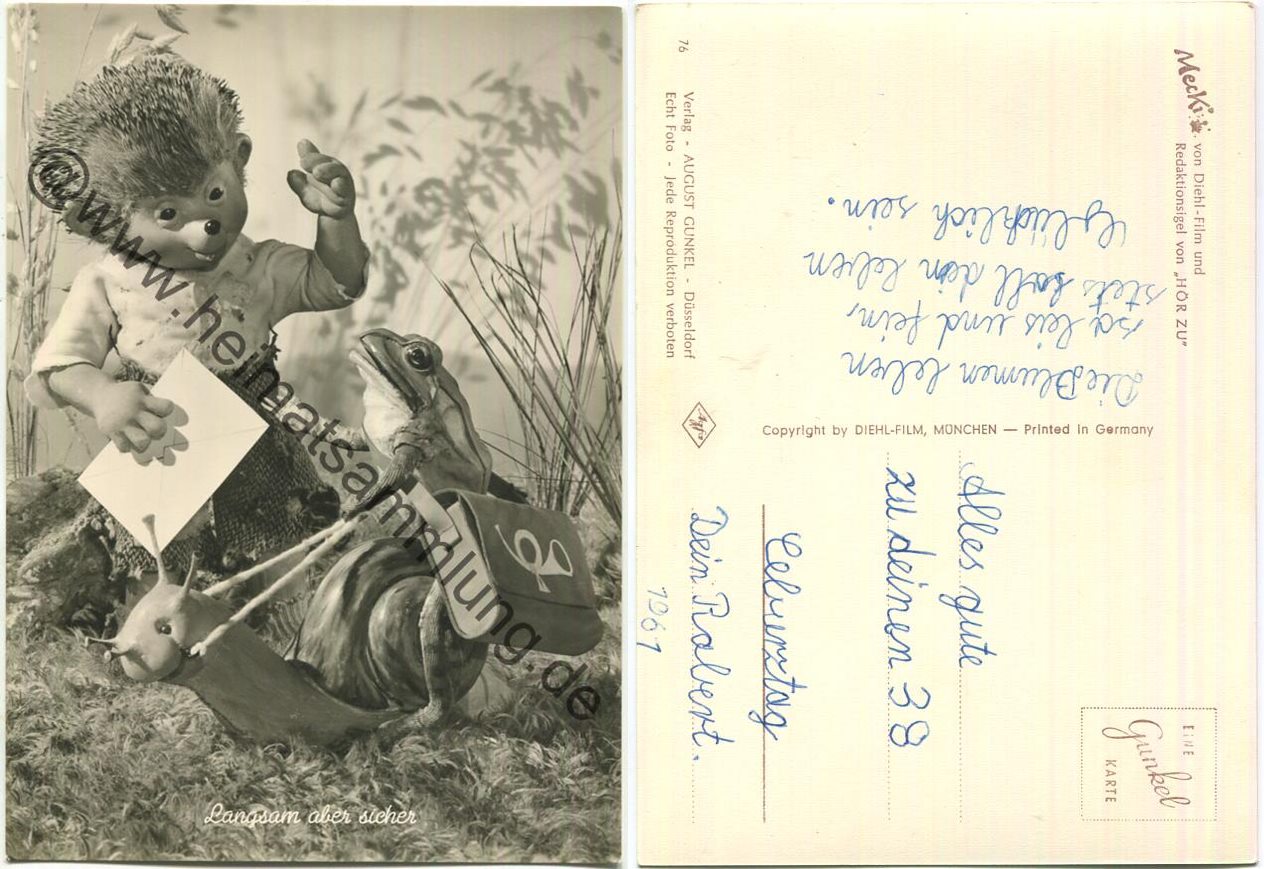 ©www.heimatsammlung.de
Langsam aber sicher
Mecki von Diehl-Film und
Redaktionsigel von „HÖR ZU"
Die Blumen leben
so leis und fein,
stets soll dein leben
Glücklich sein.
76
Verlag - AUGUST GUNKEL - Düsseldorf
Echt Foto - Jede Reproduktion verboten
Agfa
Copyright by DIEHL-FILM, MÜNCHEN — Printed in Germany
EINE
Gunkel
KARTE
Alles gute
zu deinen 38
Geburztag
Dein Robert.
1961